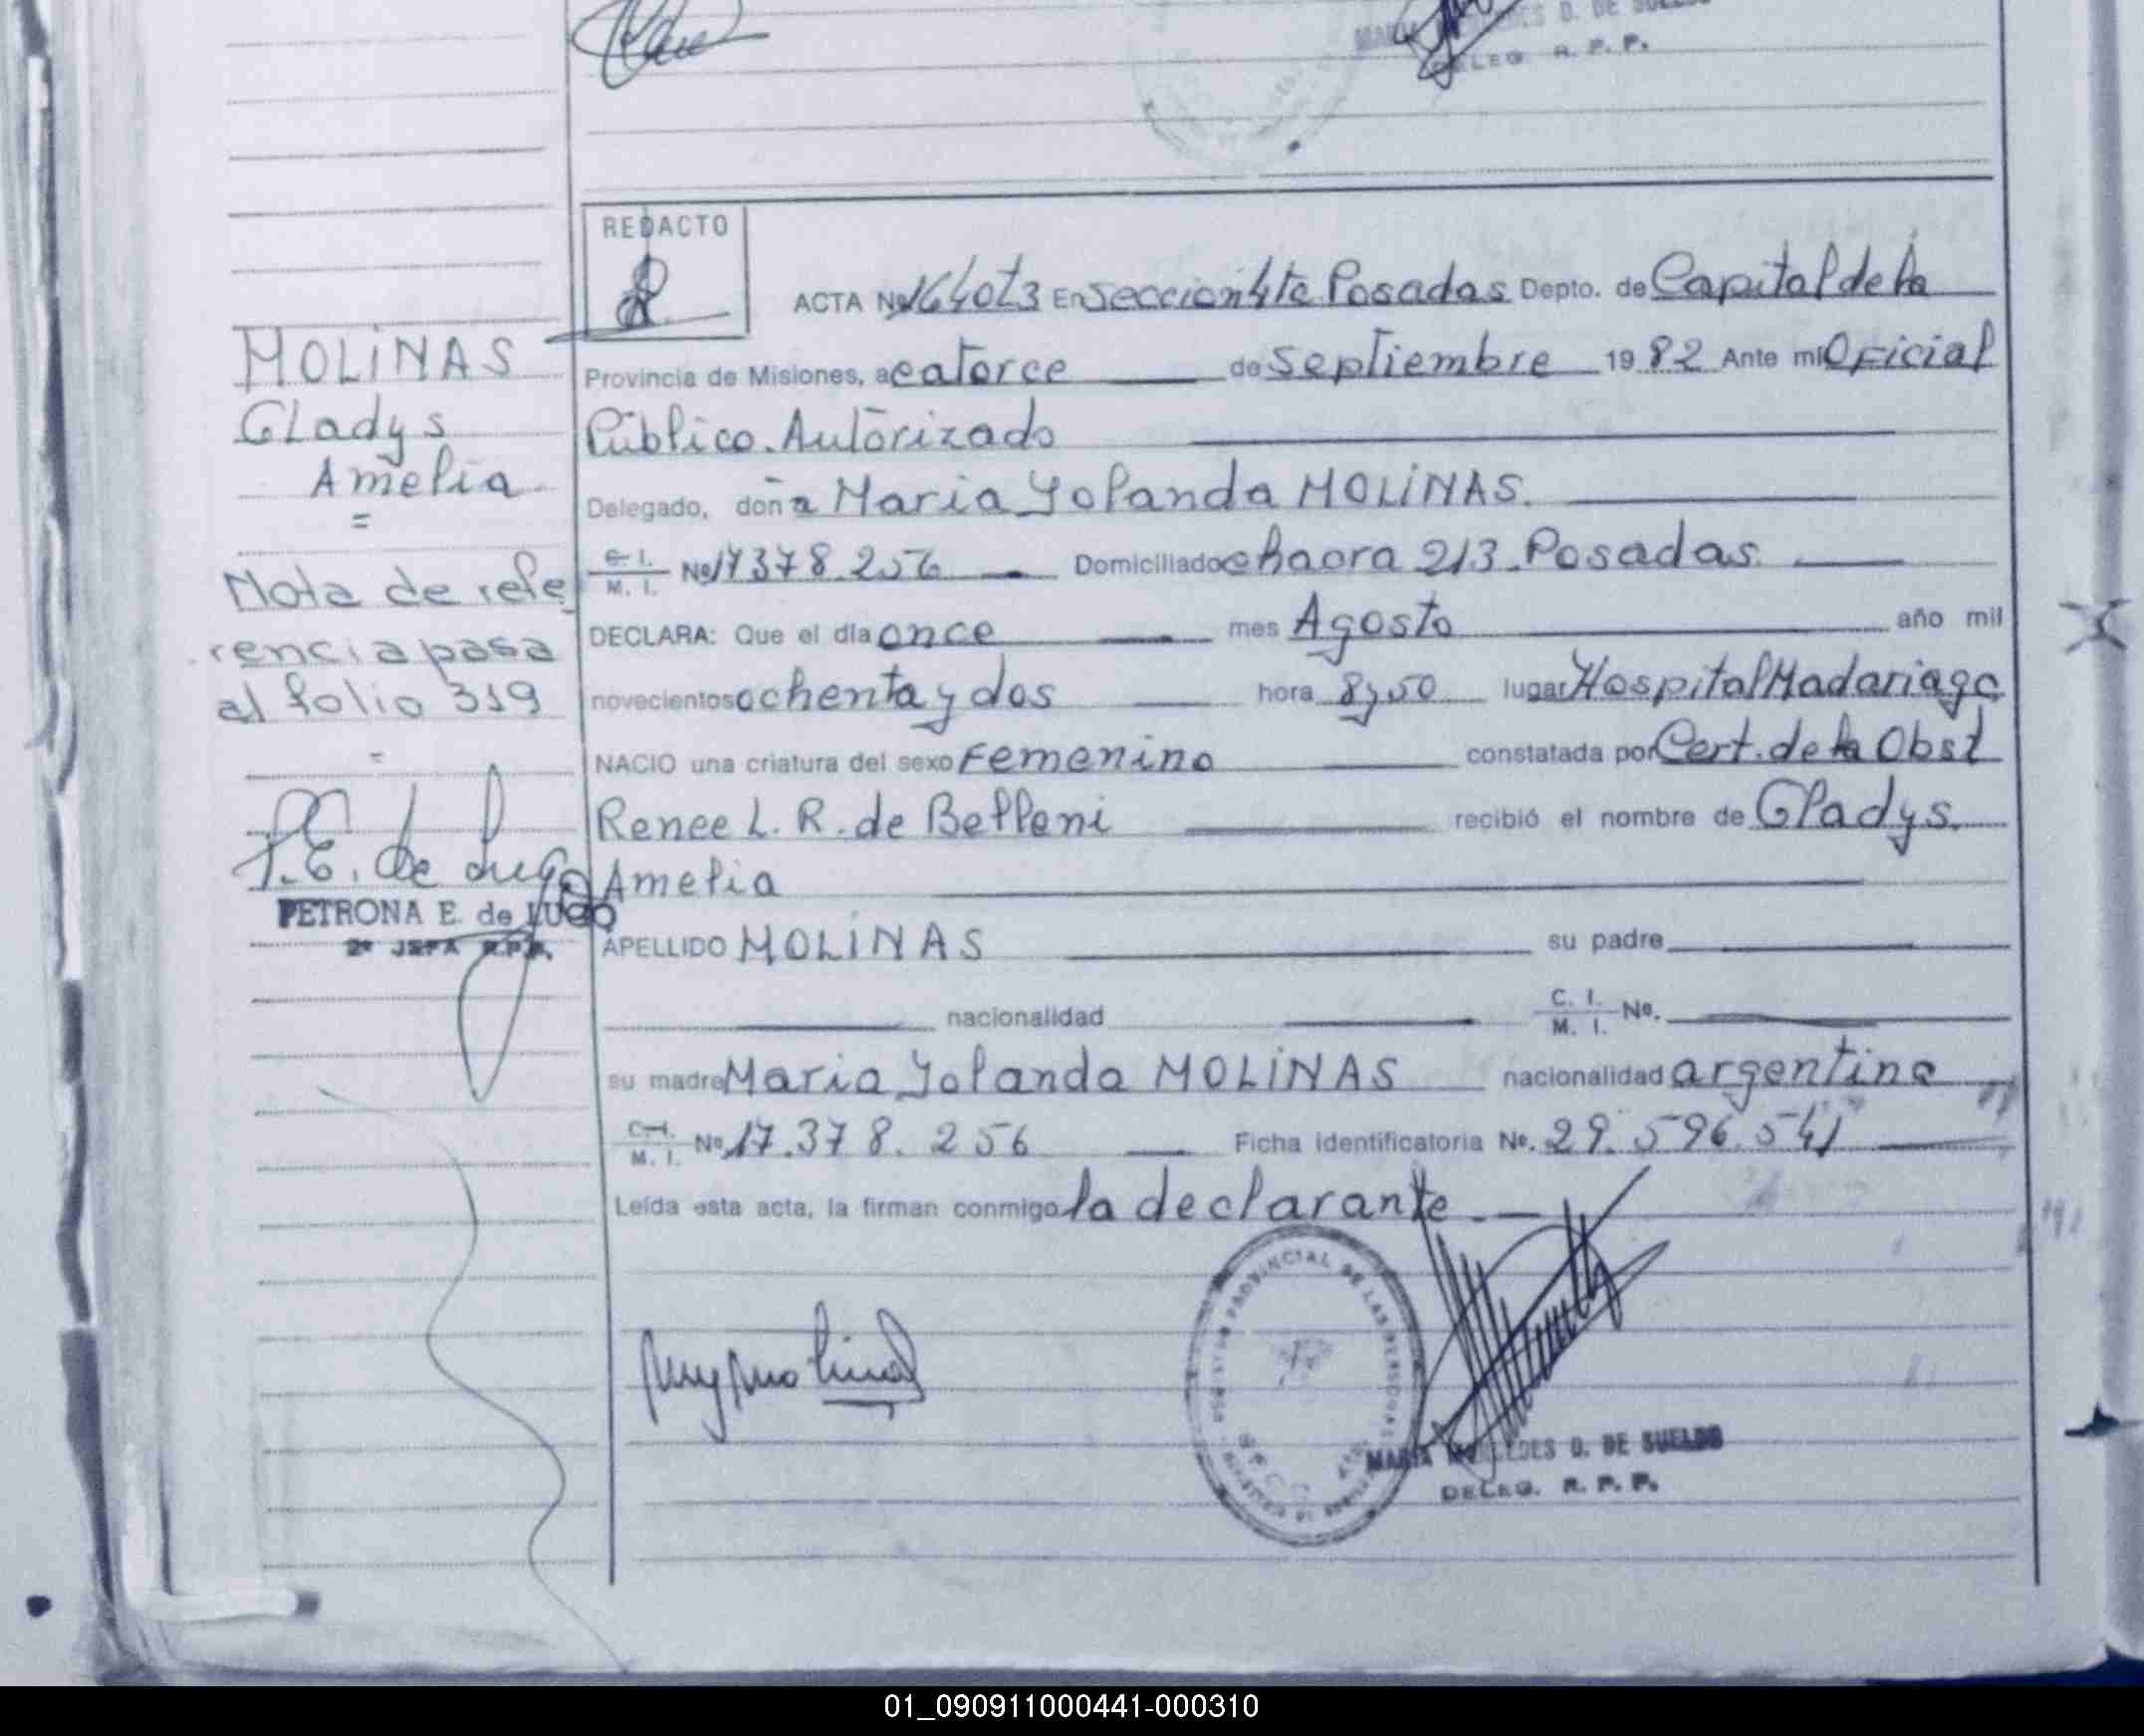 MARIA MERCEDES D. DE SUELDO
DELEG. R. P. P.
REDACTO
ACTA Nº 1640T3 En Seccion 4ta Posadas Depto. de Capital de la
MOLiNAS
Provincia de Misiones, a catorce de Septiembre 19 82 Ante mi Oficial
Gladys
Público. Autorizado
Amelia
=
Delegado, doña Maria Yolanda MOLiNAS.
C. I. / M. I. Nº 17378.256 Domiciliado chacra 213. Posadas.
Nota de refe
DECLARA: Que el día once mes Agosto año mil
rencia pasa
al folio 319
novecientos ochenta y dos hora 8,50 lugar Hospital Madariaga
=
NACIO una criatura del sexo Femenino constatada por Cert. de la Obst
Renee L. R. de Belloni recibió el nombre de Gladys.
P.E. de Lugo
Amelia
PETRONA E. de LUGO
2ª JEFA R.P.P.
APELLIDO MOLiNAS su padre
nacionalidad C. I. / M. I. Nº.
su madre Maria Yolanda MOLiNAS nacionalidad argentina
C. I. / M. I. Nº 17.378.256 Ficha identificatoria Nº. 29.596.541
Leída esta acta, la firman conmigo la declarante.
REGISTRO PROVINCIAL DE LAS PERSONAS
MARIA MERCEDES D. DE SUELDO
DELEG. R. P. P.
01_090911000441-000310